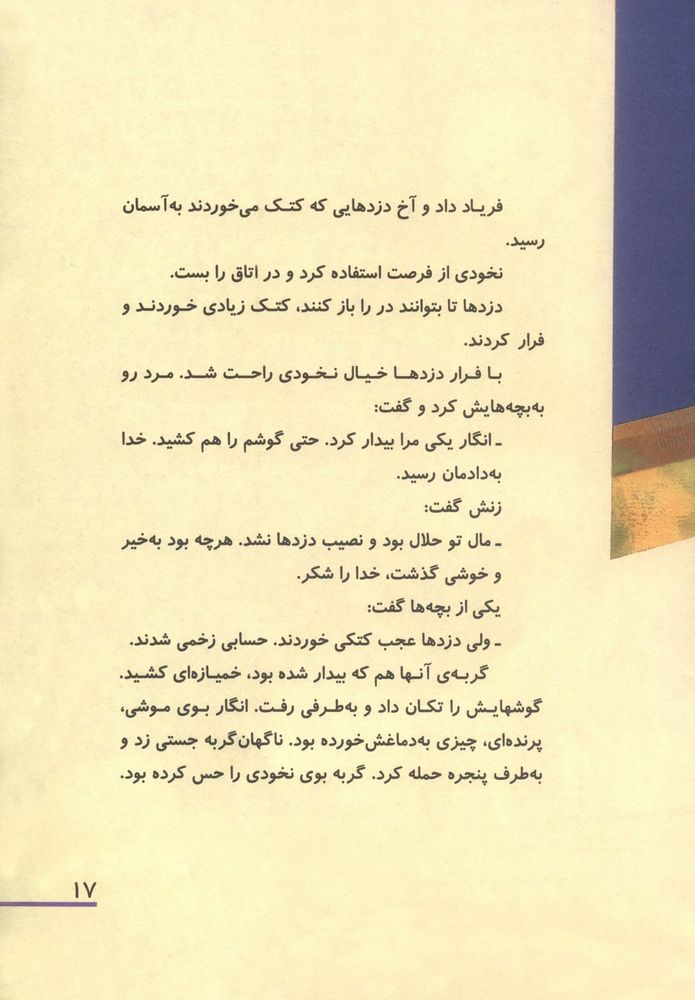 فریاد داد و آخ دزدهایی که کتک می‌خوردند به‌آسمان
رسید.
نخودی از فرصت استفاده کرد و در اتاق را بست.
دزدها تا بتوانند در را باز کنند، کتک زیادی خوردند و
فرار کردند.
با فرار دزدها خیال نخودی راحت شد. مرد رو
به‌بچه‌هایش کرد و گفت:
ـ انگار یکی مرا بیدار کرد. حتی گوشم را هم کشید. خدا
به‌دادمان رسید.
زنش گفت:
ـ مال تو حلال بود و نصیب دزدها نشد. هرچه بود به‌خیر
و خوشی گذشت، خدا را شکر.
یکی از بچه‌ها گفت:
ـ ولی دزدها عجب کتکی خوردند. حسابی زخمی شدند.
گربه‌ی آنها هم که بیدار شده بود، خمیازه‌ای کشید.
گوشهایش را تکان داد و به‌طرفی رفت. انگار بوی موشی،
پرنده‌ای، چیزی به‌دماغش‌خورده بود. ناگهان‌گربه جستی زد و
به‌طرف پنجره حمله کرد. گربه بوی نخودی را حس کرده بود.
۱۷